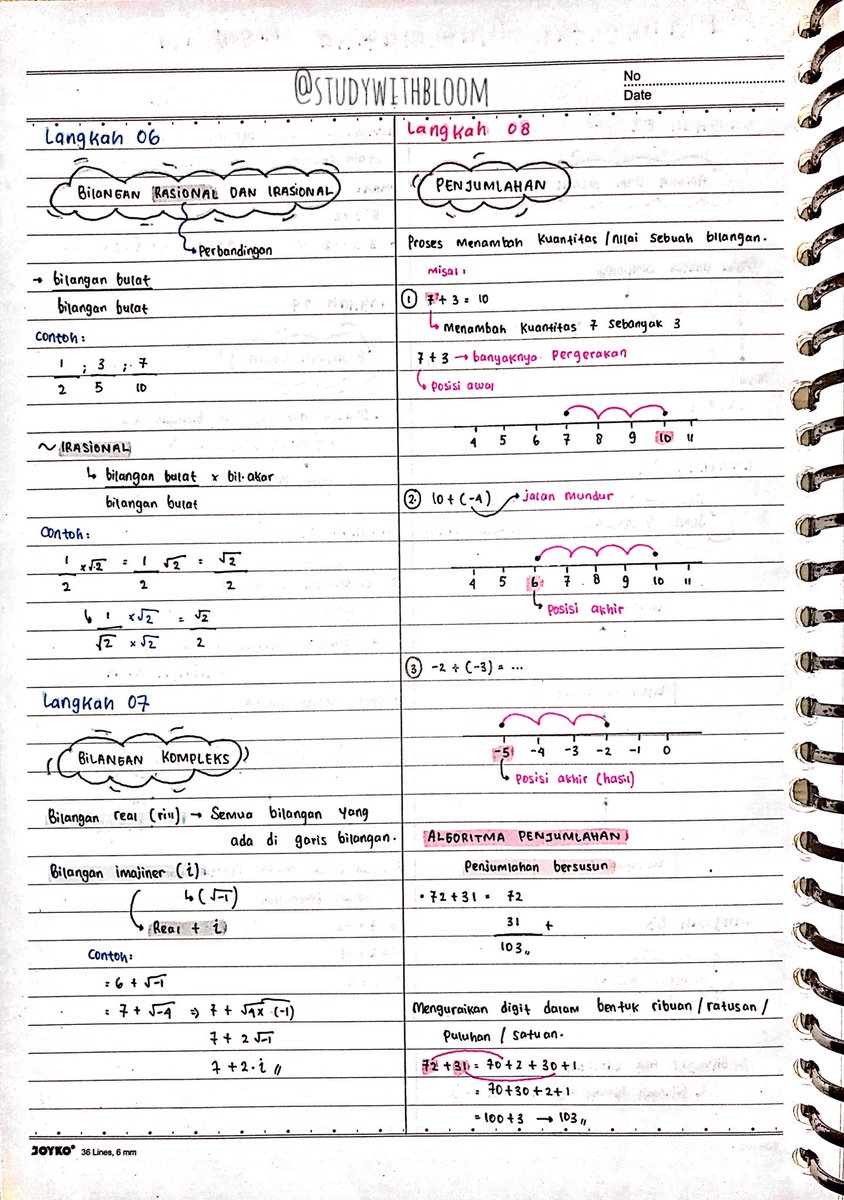 @STUDYWITHBLOOM
No
Date
Langkah 06
BILANGAN RASIONAL DAN IRASIONAL
Perbandingan
→ bilangan bulat
bilangan bulat
Contoh:
1 ; 3 ; 7
2 5 10
~ IRASIONAL
↳ bilangan bulat x bil. akar
bilangan bulat
Contoh:
1 x√2 = 1 √2 = √2
2 2 2
↳ 1 x√2 = √2
√2 x√2 2
Langkah 07
BILANGAN KOMPLEKS
Bilangan real (riil) → Semua bilangan yang
ada di garis bilangan.
Bilangan imajiner (i)
↳ (√-1)
Real + i
Contoh:
= 6 + √-1
= 7 + √-4 ⇒ 7 + √4x (-1)
7 + 2√-1
7 + 2.i //
Langkah 08
PENJUMLAHAN
Proses Menambah Kuantitas/nilai sebuah bilangan.
Misal:
① 7 + 3 = 10
Menambah Kuantitas 7 sebanyak 3
7 + 3 → banyaknya pergerakan
posisi awal
4 5 6 7 8 9 10 11
2. 10 + (-4) jalan mundur
4 5 6 7 8 9 10 11
posisi akhir
③ -2 ÷ (-3) = ...
-5 -4 -3 -2 -1 0
posisi akhir (hasil)
ALGORITMA PENJUMLAHAN
Penjumlahan bersusun
• 72 + 31 = 72
31 +
103 //
Menguraikan digit dalam bentuk ribuan / ratusan /
Puluhan / satuan.
72 + 31 = 70 + 2 + 30 + 1
= 70 + 30 + 2 + 1
= 100 + 3 → 103 //
JOYKO® 36 Lines, 6 mm